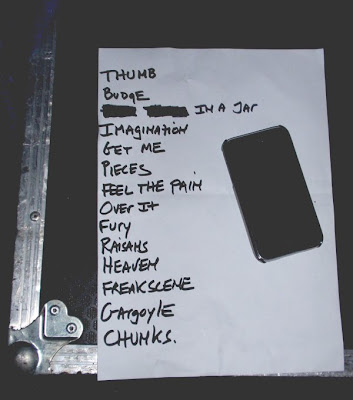 THUMB
BUDGE
IN A JAR
IMAGINATION
GET ME
PIECES
FEEL THE PAIN
OVER IT
FURY
RAISANS
HEAVEN
FREAKSCENE
GARGOYLE
CHUNKS.